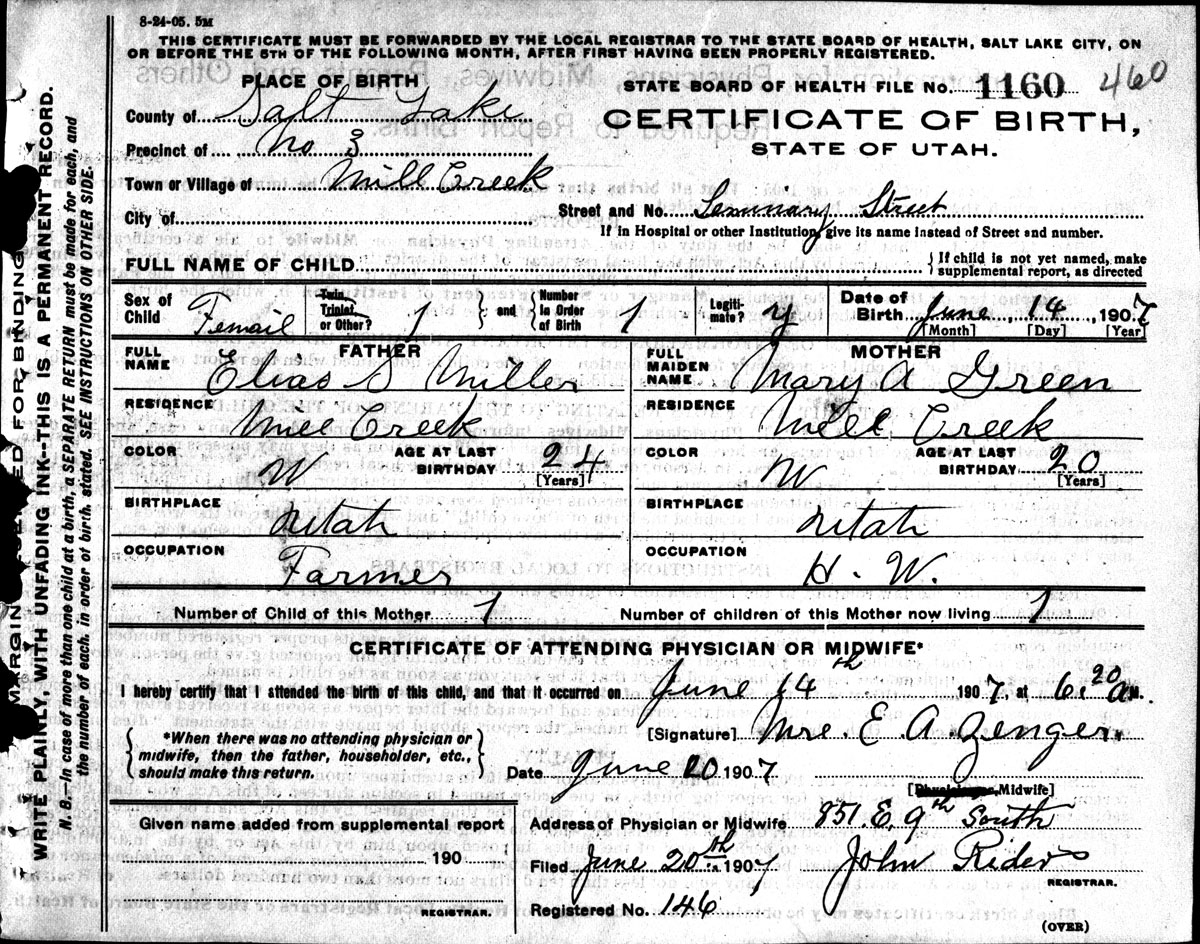 8-24-05. 5M
THIS CERTIFICATE MUST BE FORWARDED BY THE LOCAL REGISTRAR TO THE STATE BOARD OF HEALTH, SALT LAKE CITY, ON
OR BEFORE THE 5TH OF THE FOLLOWING MONTH, AFTER FIRST HAVING BEEN PROPERLY REGISTERED.
PLACE OF BIRTH
STATE BOARD OF HEALTH FILE No. 1160 460
County of Salt Lake
CERTIFICATE OF BIRTH,
STATE OF UTAH.
Precinct of No 3
Town or Village of Mill Creek
City of
Street and No. Seminary Street
If in Hospital or other Institution, give its name instead of Street and number.
FULL NAME OF CHILD
If child is not yet named, make
supplemental report, as directed
Sex of Child Femail
Twin, Triplet, or Other? 1
and
Number in Order of Birth 1
Legitimate? y
Date of Birth June 14, 1907
[Month] [Day] [Year]
FATHER
FULL NAME Elias S Miller
RESIDENCE Mill Creek
COLOR W
AGE AT LAST BIRTHDAY 24
[Years]
BIRTHPLACE Utah
OCCUPATION Farmer
MOTHER
FULL MAIDEN NAME Mary A Green
RESIDENCE Mill Creek
COLOR W
AGE AT LAST BIRTHDAY 20
[Years]
BIRTHPLACE Utah
OCCUPATION H. W.
Number of Child of this Mother 1
Number of children of this Mother now living 1
CERTIFICATE OF ATTENDING PHYSICIAN OR MIDWIFE*
I hereby certify that I attended the birth of this child, and that it occurred on June 14th 1907, at 6.20 a M.
*When there was no attending physician or
midwife, then the father, householder, etc.,
should make this return.
[Signature] Mrs E A Zenger
Date June 20 1907
[Physician or, Midwife]
Given name added from supplemental report
190
REGISTRAR.
Address of Physician or Midwife 851. E. 9th South
Filed June 20th 1907 John Rider
REGISTRAR.
Registered No. 146
(OVER)
MARGIN FOR BINDING
WRITE PLAINLY, WITH UNFADING INK--THIS IS A PERMANENT RECORD.
N. B.—In case of more than one child at a birth, a SEPARATE RETURN must be made for each, and
the number of each, in order of birth, stated. SEE INSTRUCTIONS ON OTHER SIDE.